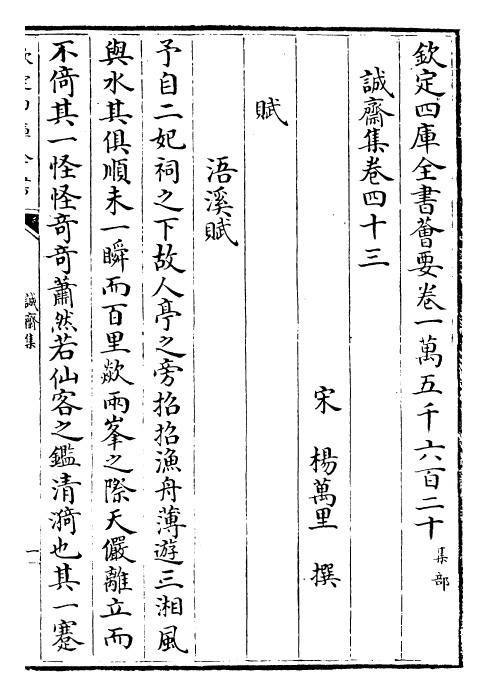 欽定四庫全書薈要卷一萬五千六百二十 集部
誠齋集卷四十三
宋 楊萬里 撰
賦
浯溪賦
予自二妃祠之下故人亭之旁招招漁舟薄遊三湘風
與水其俱順未一瞬而百里欻兩峯之際天儼離立而
不倚其一怪怪奇奇蕭然若仙客之鑑清漪也其一蹇
誠齋集
一